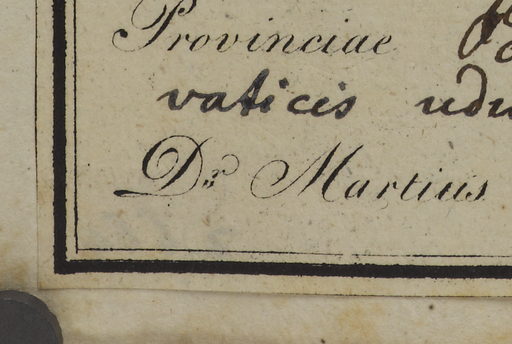 Provinciae
vaticis udu
Dr. Martius